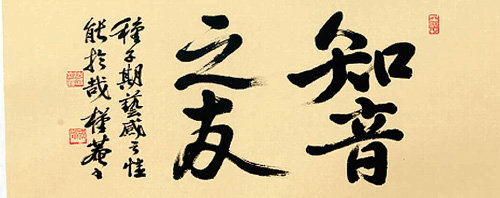 知音
之友
種子期藝感之性
能於哉槿菴